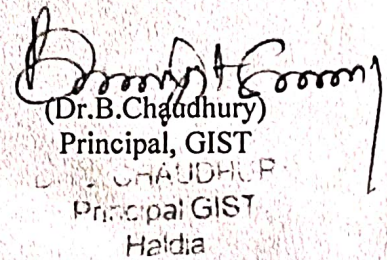 (Dr.B.Chaudhury)
Principal, GIST
CHAUDHUR
Principal GIST
Haldia